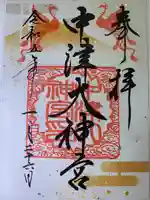 奉拝
中津大神宮
令和五年一月二十六日